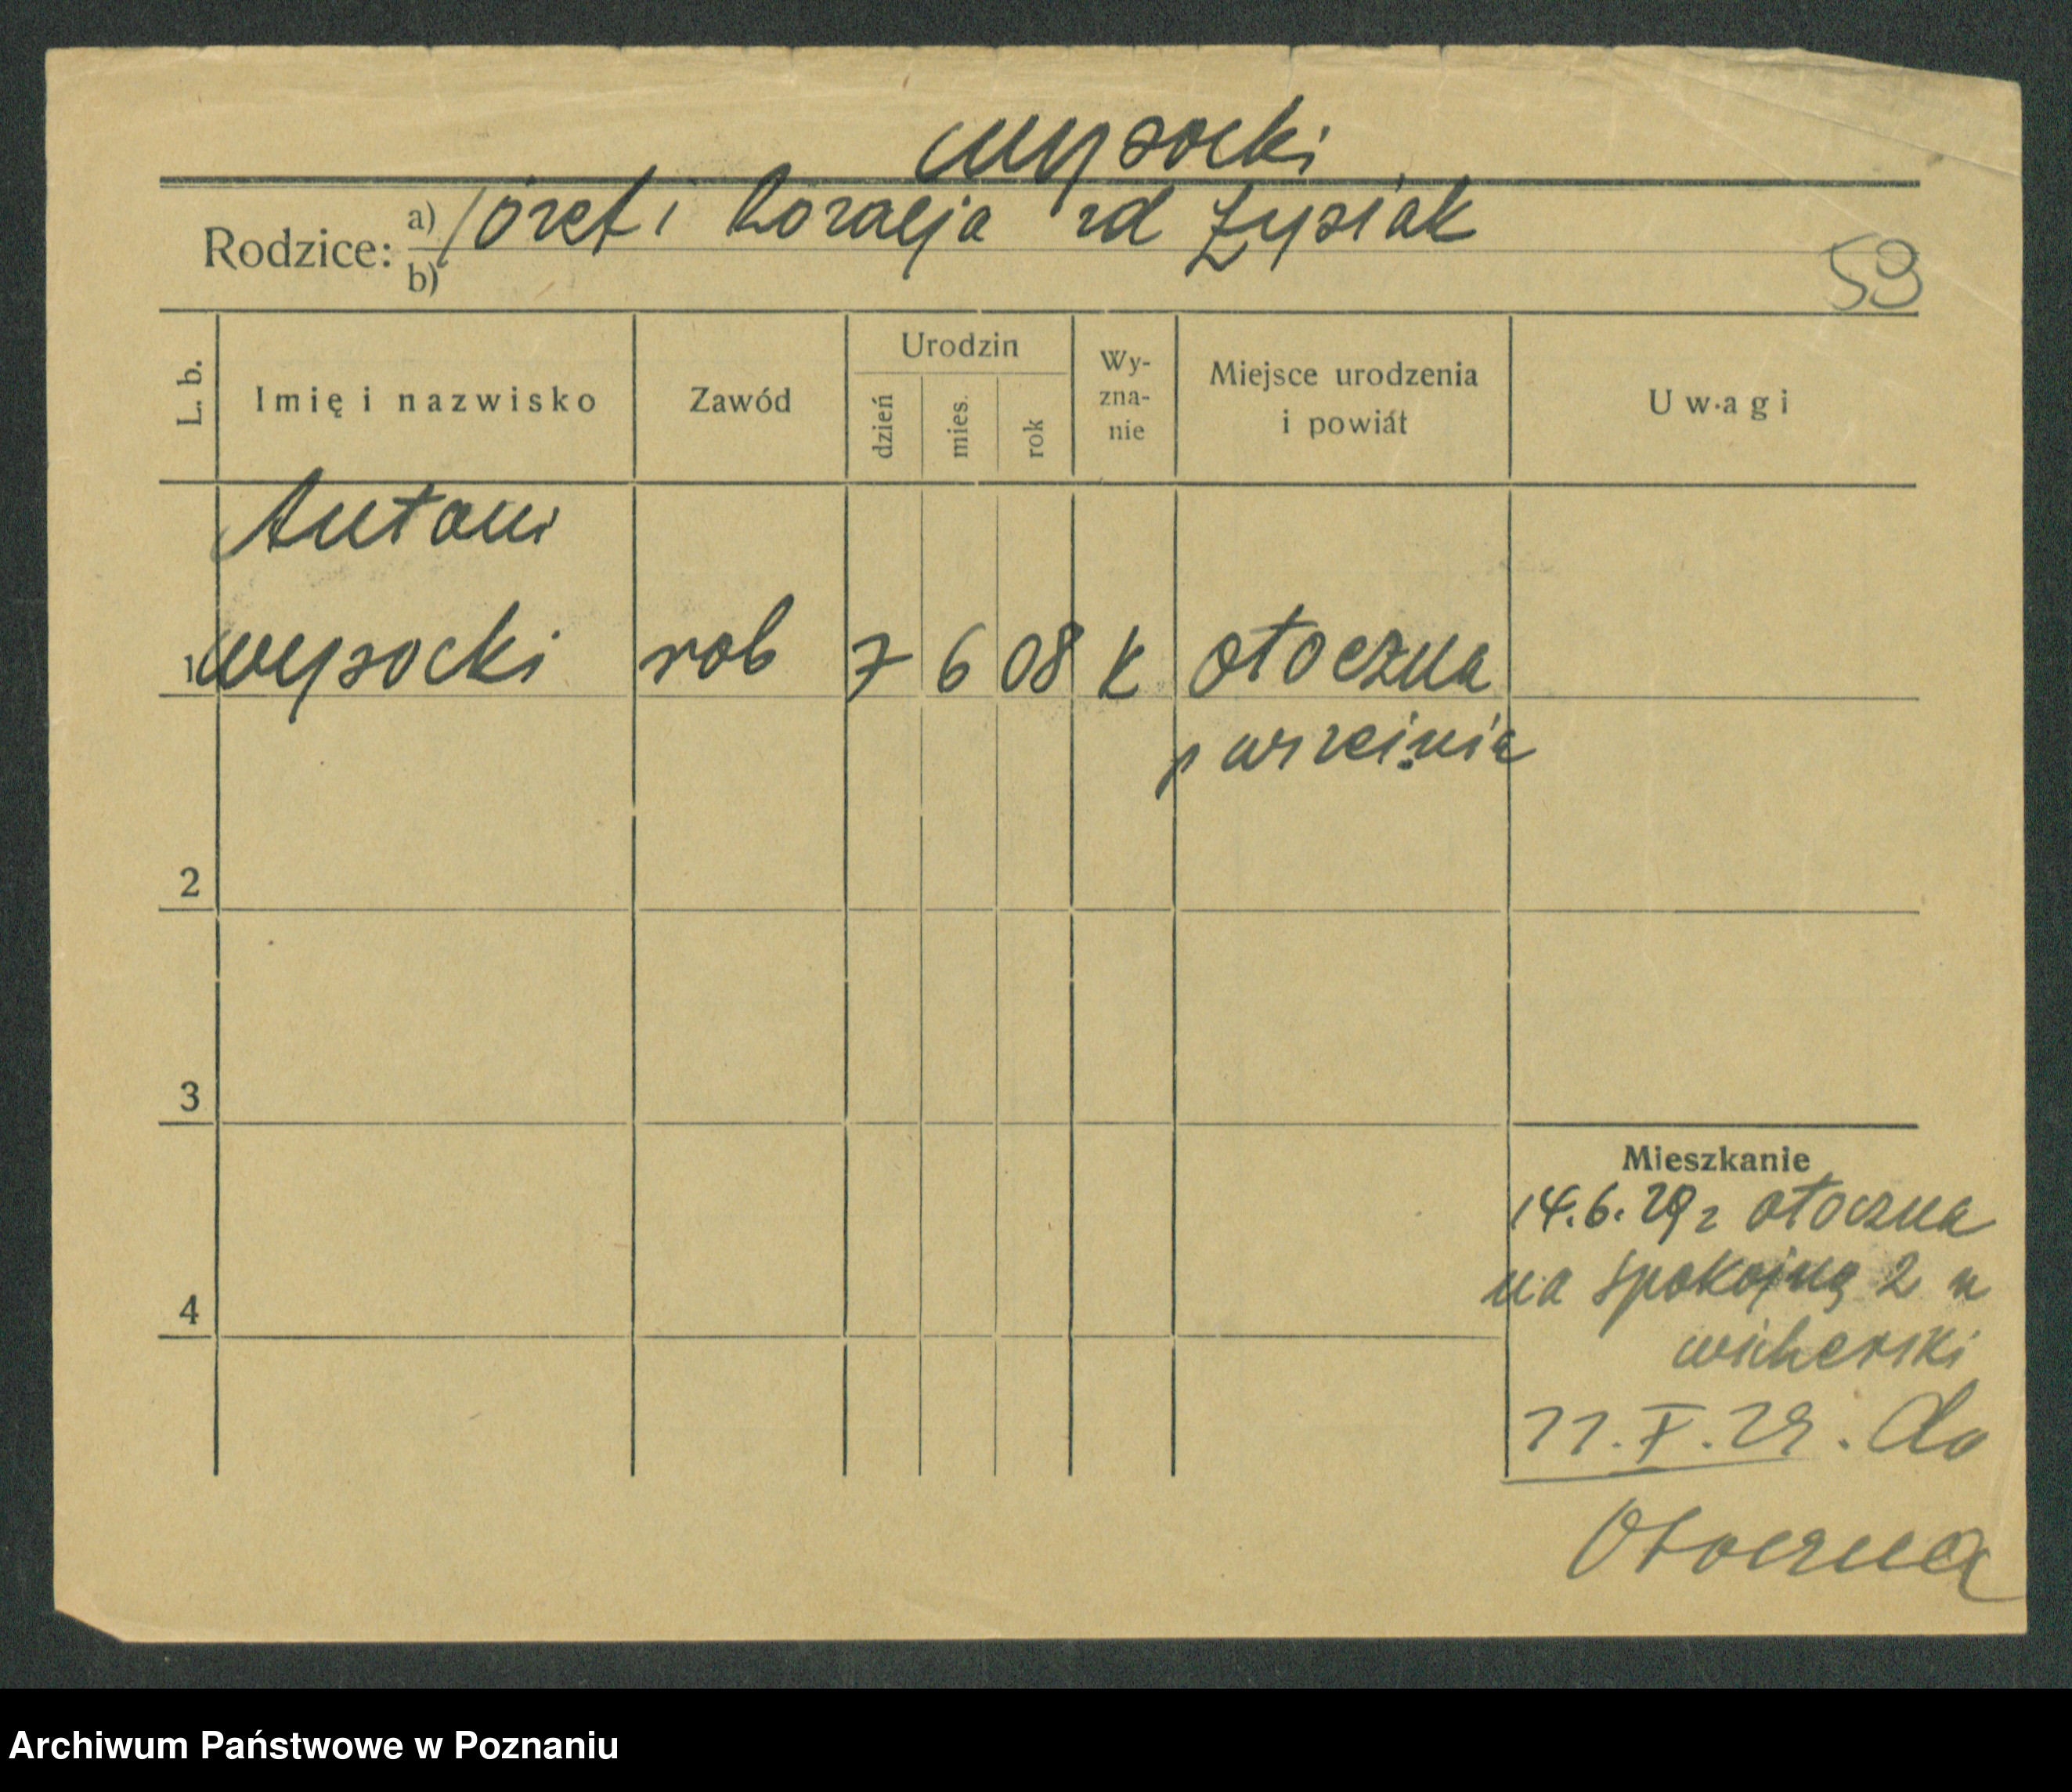 wysocki
Rodzice: a) Józef i Rozalja zd Łysiak
b)
59
L. b. Imię i nazwisko Zawód Urodzin dzień mies. rok Wy-zna-nie Miejsce urodzenia i powiat Uwagi
Antoni
1 wysocki rob 7 6 08 K otoczna
p września
2
3
Mieszkanie
14.6.29 r otoczna
na spokojną 2 u
4
wicherski
11.X.29. do
Otoczna
Archiwum Państwowe w Poznaniu